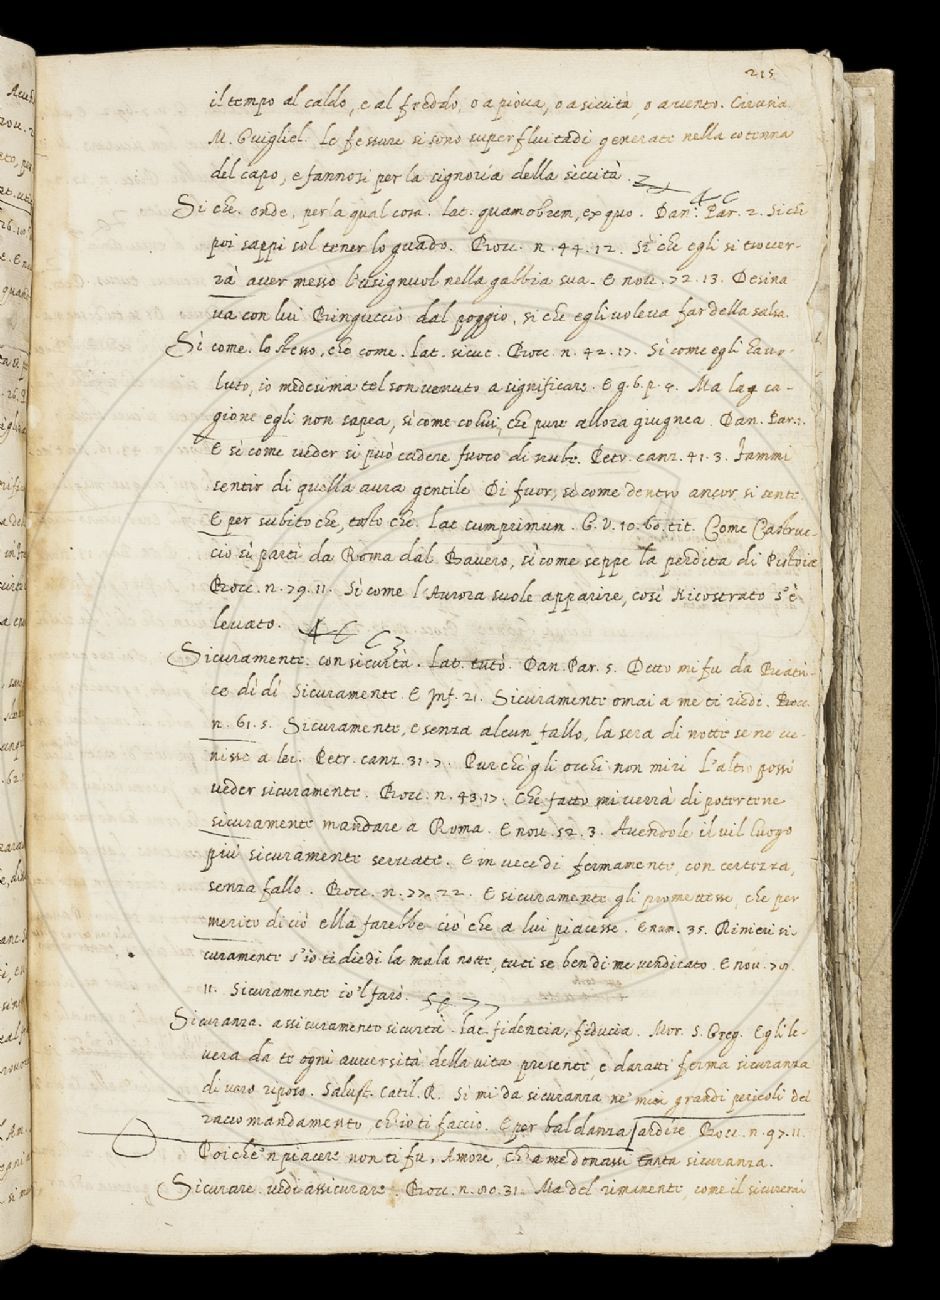 215
il tempo al caldo, e al freddo, o a piova, o a siccità, o a vento. Cirusia
M. Guigliel. Le fessure si sono superfluitadi generate nella cotenna
del capo, e fannosi per la signoria della siccità.
Si che. onde, per la qual cosa. lat. quamobrem, ex quo. Dan. Par. 2. Si che
poi sappi sol tener lo guado. Bocc. n. 44. 12. Si che egli si trover-
rà aver messo l'usignuol nella gabbia sua. E nov. 72. 13. Desina
va con lui Binguccio dal poggio, si che egli voleva far della salsa.
Sì come. lo stesso, che come. lat. sicut. Bocc. n. 42. 17. Sì come egli
luto, io medesima tel son venuto a significare. E g. 6. p. 4. Ma la ca-
gione egli non sapea, sì come colui, che pure allora giugnea. Dan. Par. 1.
E sì come veder si può cadere fuoco di nube. Petr. canz. 41. 3. Fammi
sentir di quella aura gentile Di fuor, sì come dentro ancor si sente.
E per subito che, tosto che. lat. cumprimum. G. V. 10. 60. tit. Come Castruc-
cio si partì da Roma dal Bavero, sì come seppe la perdita di Pistoia
Bocc. n. 79. 11. Sì come l'Aurora suole apparire, così Nicostrato s'è
levato.
Sicuramente. con sicurtà. Lat. tutò. Dan. Par. 5. Detto mi fu da Beatri-
ce dì dì Sicuramente. E Inf. 21. Sicuramente omai a me ti riedi. Bocc.
n. 61. 5. Sicuramente, e senza alcun fallo, la sera di notte se ne ve-
nisse a lei. Petr. canz. 31. 7. Purchè gli occhi non miri L'altro possi
veder sicuramente. Bocc. n. 43. 17. Che fatto mi verrà di potertene
sicuramente mandare a Roma. E nov. 52. 3. Avendole il vil luogo
più sicuramente servate. E in vece di fermamente, con certezza,
senza fallo. Bocc. n. 77. 22. E sicuramente gli promettesse, che per
merito di ciò ella farebbe ciò che a lui piacesse. E num. 35. Rinieri si-
curamente s'io ti diedi la mala notte, tu ti se ben di me vendicato. E nov. 79.
11. Sicuramente io 'l farò.
Sicuranza. assicuramento sicurtà. lat. fidencia, fiducia. Mor. S. Greg. Egli le-
verà da te ogni avversità della vita presente, e daratti ferma sicuranza
di vero riposo. Salust. Catil. R. Si mi dà sicuranza ne' miei grandi pericoli del
mandamento, ch'io ti faccio. E per baldanza, ardire Bocc. n. 97. 11.
Poichè 'n piacere non ti fu, Amore, ch'a me donassi tanta sicuranza.
Sicurare. vedi assicurare. Bocc. n. 80. 31. Ma del rimanente, come il sicurerai